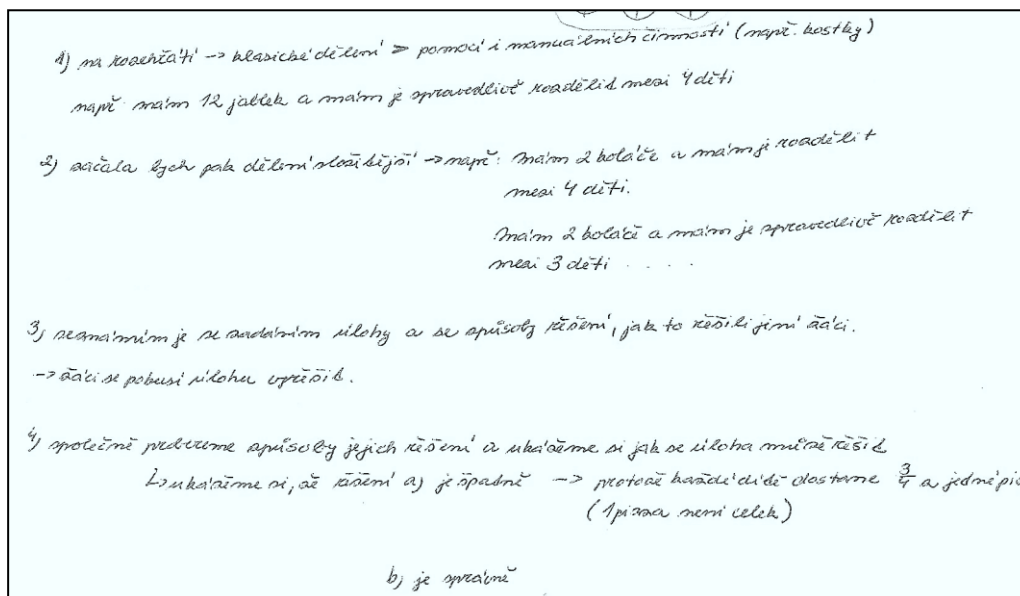 1) na rozehřátí → klasické dělení > pomocí i manuálních činností (např. kostky)
např. mám 12 jablek a mám je spravedlivě rozdělit mezi 4 děti
2) začala bych pak dělení složitější → např: mám 2 koláče a mám je rozdělit
mezi 4 děti.
mám 2 koláče a mám je spravedlivě rozdělit
mezi 3 děti . . . . .
3) seznámím je se zadáním úlohy a se způsoby řešení, jak to řešili jiní žáci.
→ žáci se pokusí úlohu vyřešit.
4) společně probereme způsoby jejich řešení a ukážeme si jak se úloha může řešit
↳ ukážeme si, že řešení a) je špatně → protože každé dítě dostane 3/4 a jedné pi
(1 pizza není celek)
b) je správně